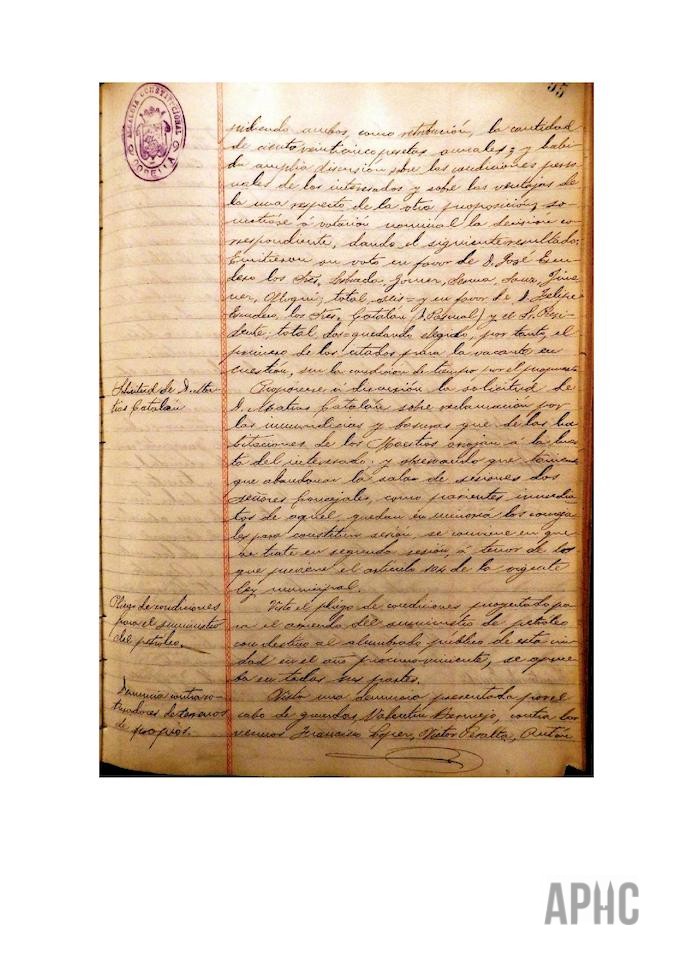 55
ALCALDIA CONSTITUCIONAL
CORELLA
pidiendo ambos, como retribución, la cantidad
de ciento veinticinco pesetas anuales; y habi-
da amplia discusión sobre las condiciones perso-
nales de los interesados y sobre las ventajas de
la una respecto de la otra proposición, so-
metióse á votación nominal la decisión co-
rrespondiente, dando el siguiente resultado:
Emitieron su voto en favor de D. José Escu-
dero los Sres. Sanz, Jime-
nez, total, seis = y en favor de D. Felipe
Escudero, los Sres. Catalán (D. Pascual) y el Sr. Presi-
dente; total, dos = quedando elegido, por tanto, el
primero de los citados para la vacante en
cuestión, sin la condición de tiempo por él propuesta
Solicitud de D. Ma-
tias Catalán
Propónese á discusión la solicitud de
D. Matias Catalán sobre reclamación por
las inmundicias y basuras que de las ha-
bitaciones de los Maestros arrojan á la huer-
ta del interesado; y observando que teniendo
que abandonar la sala de sesiones dos
señores concejales, como parientes inmedia-
tos de aquel, quedan en minoría los conceja-
les para constituir sesión, se conviene en que
se trate en segunda sesión á tenor de lo
que previene el artículo 104 de la vigente
ley municipal.
Pliego de condiciones
para el suministro
del petroleo.
Visto el pliego de condiciones proyectado pa-
ra el arriendo del suministro de petroleo
con destino al alumbrado público de esta ciu-
dad en el año proximo viniente, se aprue-
ba en todas sus partes.
Denuncia contra ro-
turadores de terrenos
de propios.
Vista una denuncia presentada por el
cabo de guardas Valentin Bermejo, contra los
vecinos Francisco Lopez, Victor Peralta, Antón
APHC